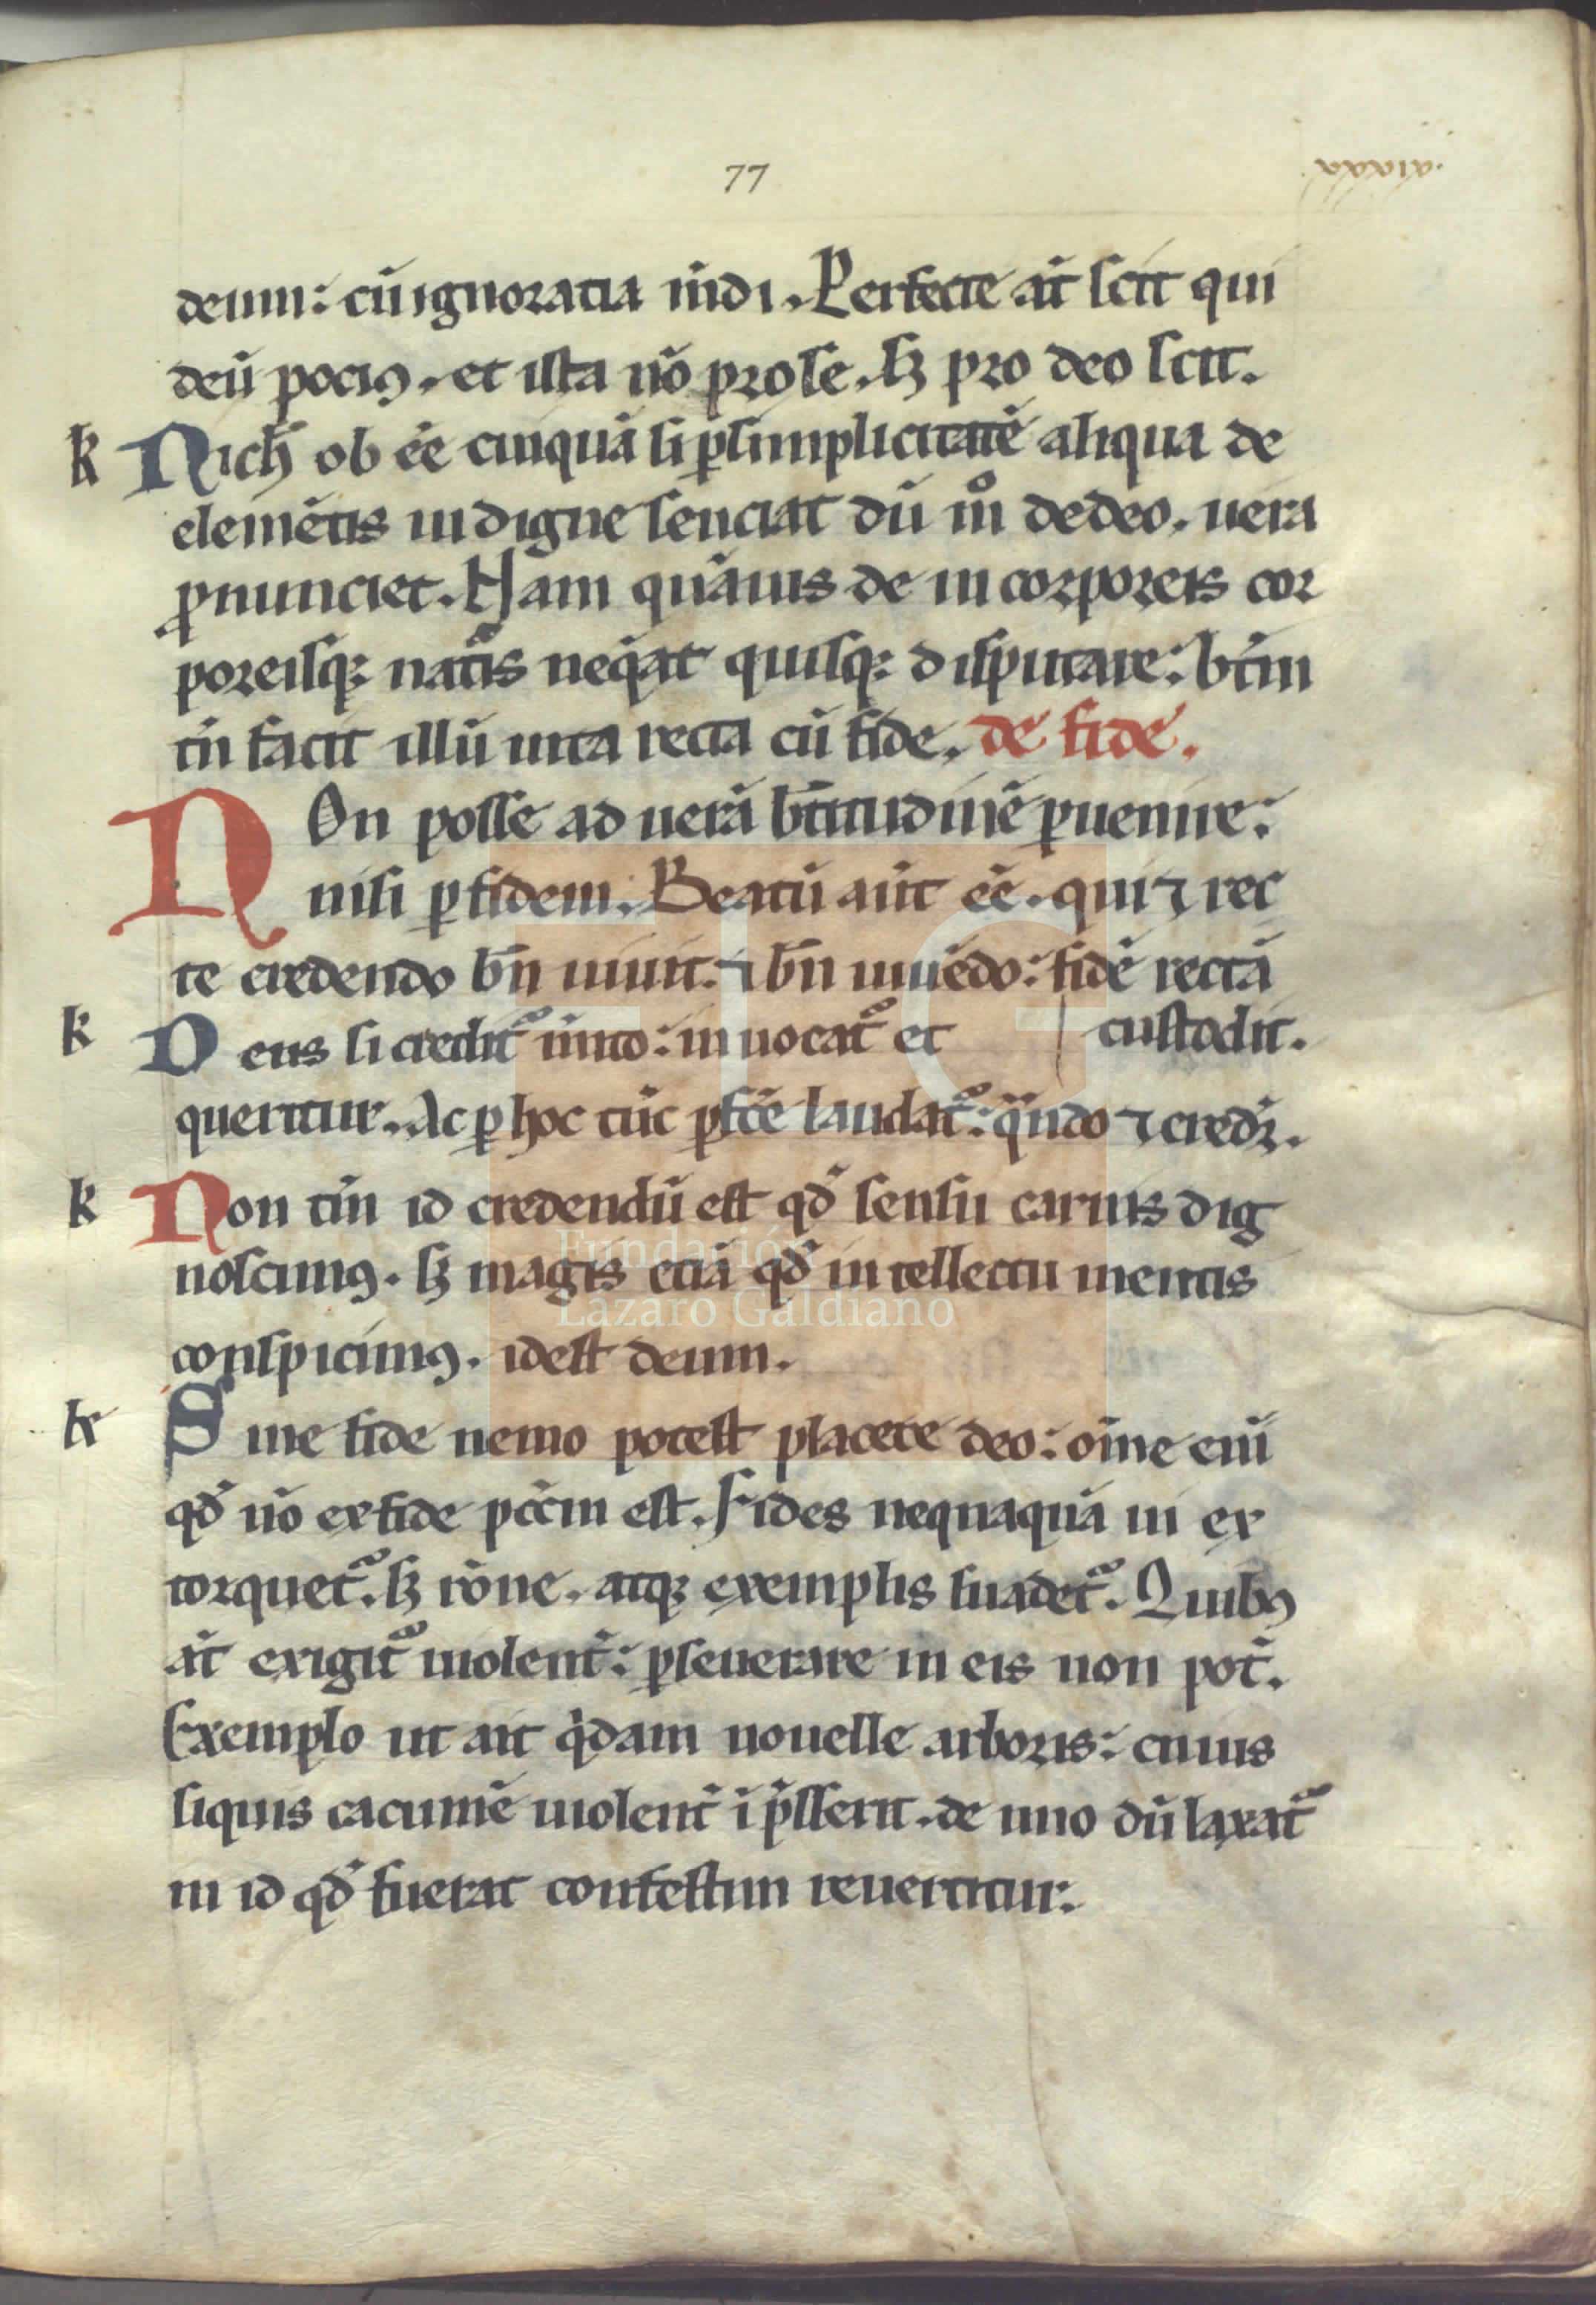 77
deum: cũ ignoratia mdi. Perfecte at̃ scit qui
deũ pocius. et ista nõ pro se. sꝫ pro deo scit.
k Nich̃ ob eẽ cuiquã si ꝑ simplicitatẽ aliqua de
elemẽtis indigne senciat dũ mᵒ de deo. uera
ꝓnunciet. Nam quãuis de incorporeis cor
poreisqꝫ nat̃is neq̃at quisqꝫ disputare: bt̃m
tñ facit illũ uita recta cũ fide. de fide.
NOn posse ad uerã bt̃itudinẽ ꝑuenire:
nisi ꝑ fidem. Beatũ aũt eẽ. qui ⁊ rec
te credendo bñ uiuit: ⁊ bñ uiuẽdo: fidẽ rectã
custodit.
k Deus si credit᷑ m̃ito: inuocat᷑ et
queritur. Ac ꝑ hoc tũc ꝑfc̃e laudat᷑: qñdo ⁊ credit᷑.
k Non tm̃ id credendũ est qd̃ sensu carnis dig
noscimꝰ. sꝫ magis eciã qd̃ intellectu mentis
conspicimꝰ. idest deum.
k Sine fide nemo potest placere deo: om̃e eni᷑
qd̃ nõ ex fide pcc̃m est. Fides nequaquã ui ex
torquet᷑. sꝫ rõne. atqꝫ exemplis suadet᷑. Quibꝰ
at̃ exigit᷑ uiolent̃: ꝑseuerare in eis non pot̃.
Exemplo ut ait q̃dam nouelle arboris: cuius
siquis cacumẽ uiolent̃ ĩp̃sserit. de uno dũ laxat᷑
in id qd̃ fuerat confestim reuertitur.
Fundación
Lázaro Galdiano